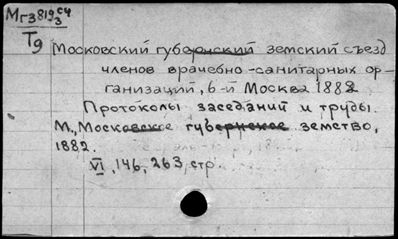 МГ381904
3
Т9
Московский губернский земский съезд
членов врачебно-санитарных ор-
ганизаций, 6-й Москва 1882
Протоколы заседаний и труды.
М., Московское губернское земство,
1882.
VI, 146, 263, стр.